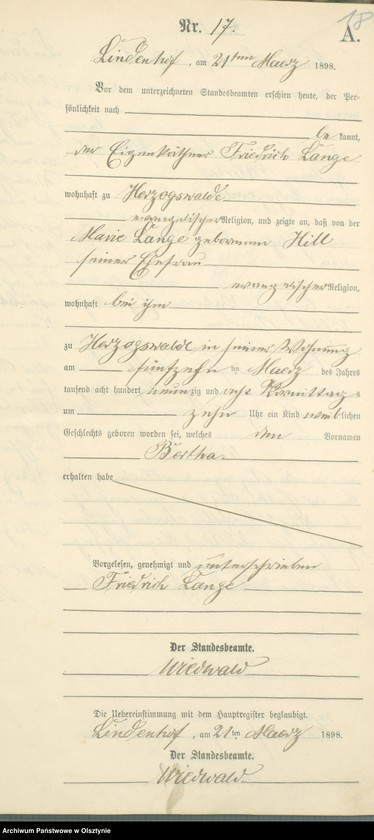 18
Nr. 17.
A.
Lindenhof, am 21ten Maerz 1898.
Vor dem unterzeichneten Standesbeamten erschien heute, der Per-
sönlichkeit nach
be kannt,
der Eigenkäthner Friedrich Lange
wohnhaft zu Herzogswalde
evangelischer Religion, und zeigte an, daß von der
Marie Lange geborenen Hill
seiner Ehefrau
evangelischer Religion,
wohnhaft bei ihm
zu Herzogswalde in seiner Wohnung
am fünfzehn ten Maerz des Jahres
tausend acht hundert neunzig und acht Vormittags
um zehn Uhr ein Kind weiblichen
Geschlechts geboren worden sei, welches den Vornamen
Bertha
erhalten habe
Vorgelesen, genehmigt und unterschrieben
Friedrich Lange
Der Standesbeamte.
Wiedwald
Die Uebereinstimmung mit dem Hauptregister beglaubigt.
Lindenhof, am 21ten Maerz 1898.
Der Standesbeamte.
Wiedwald
Archiwum Państwowe w Olsztynie